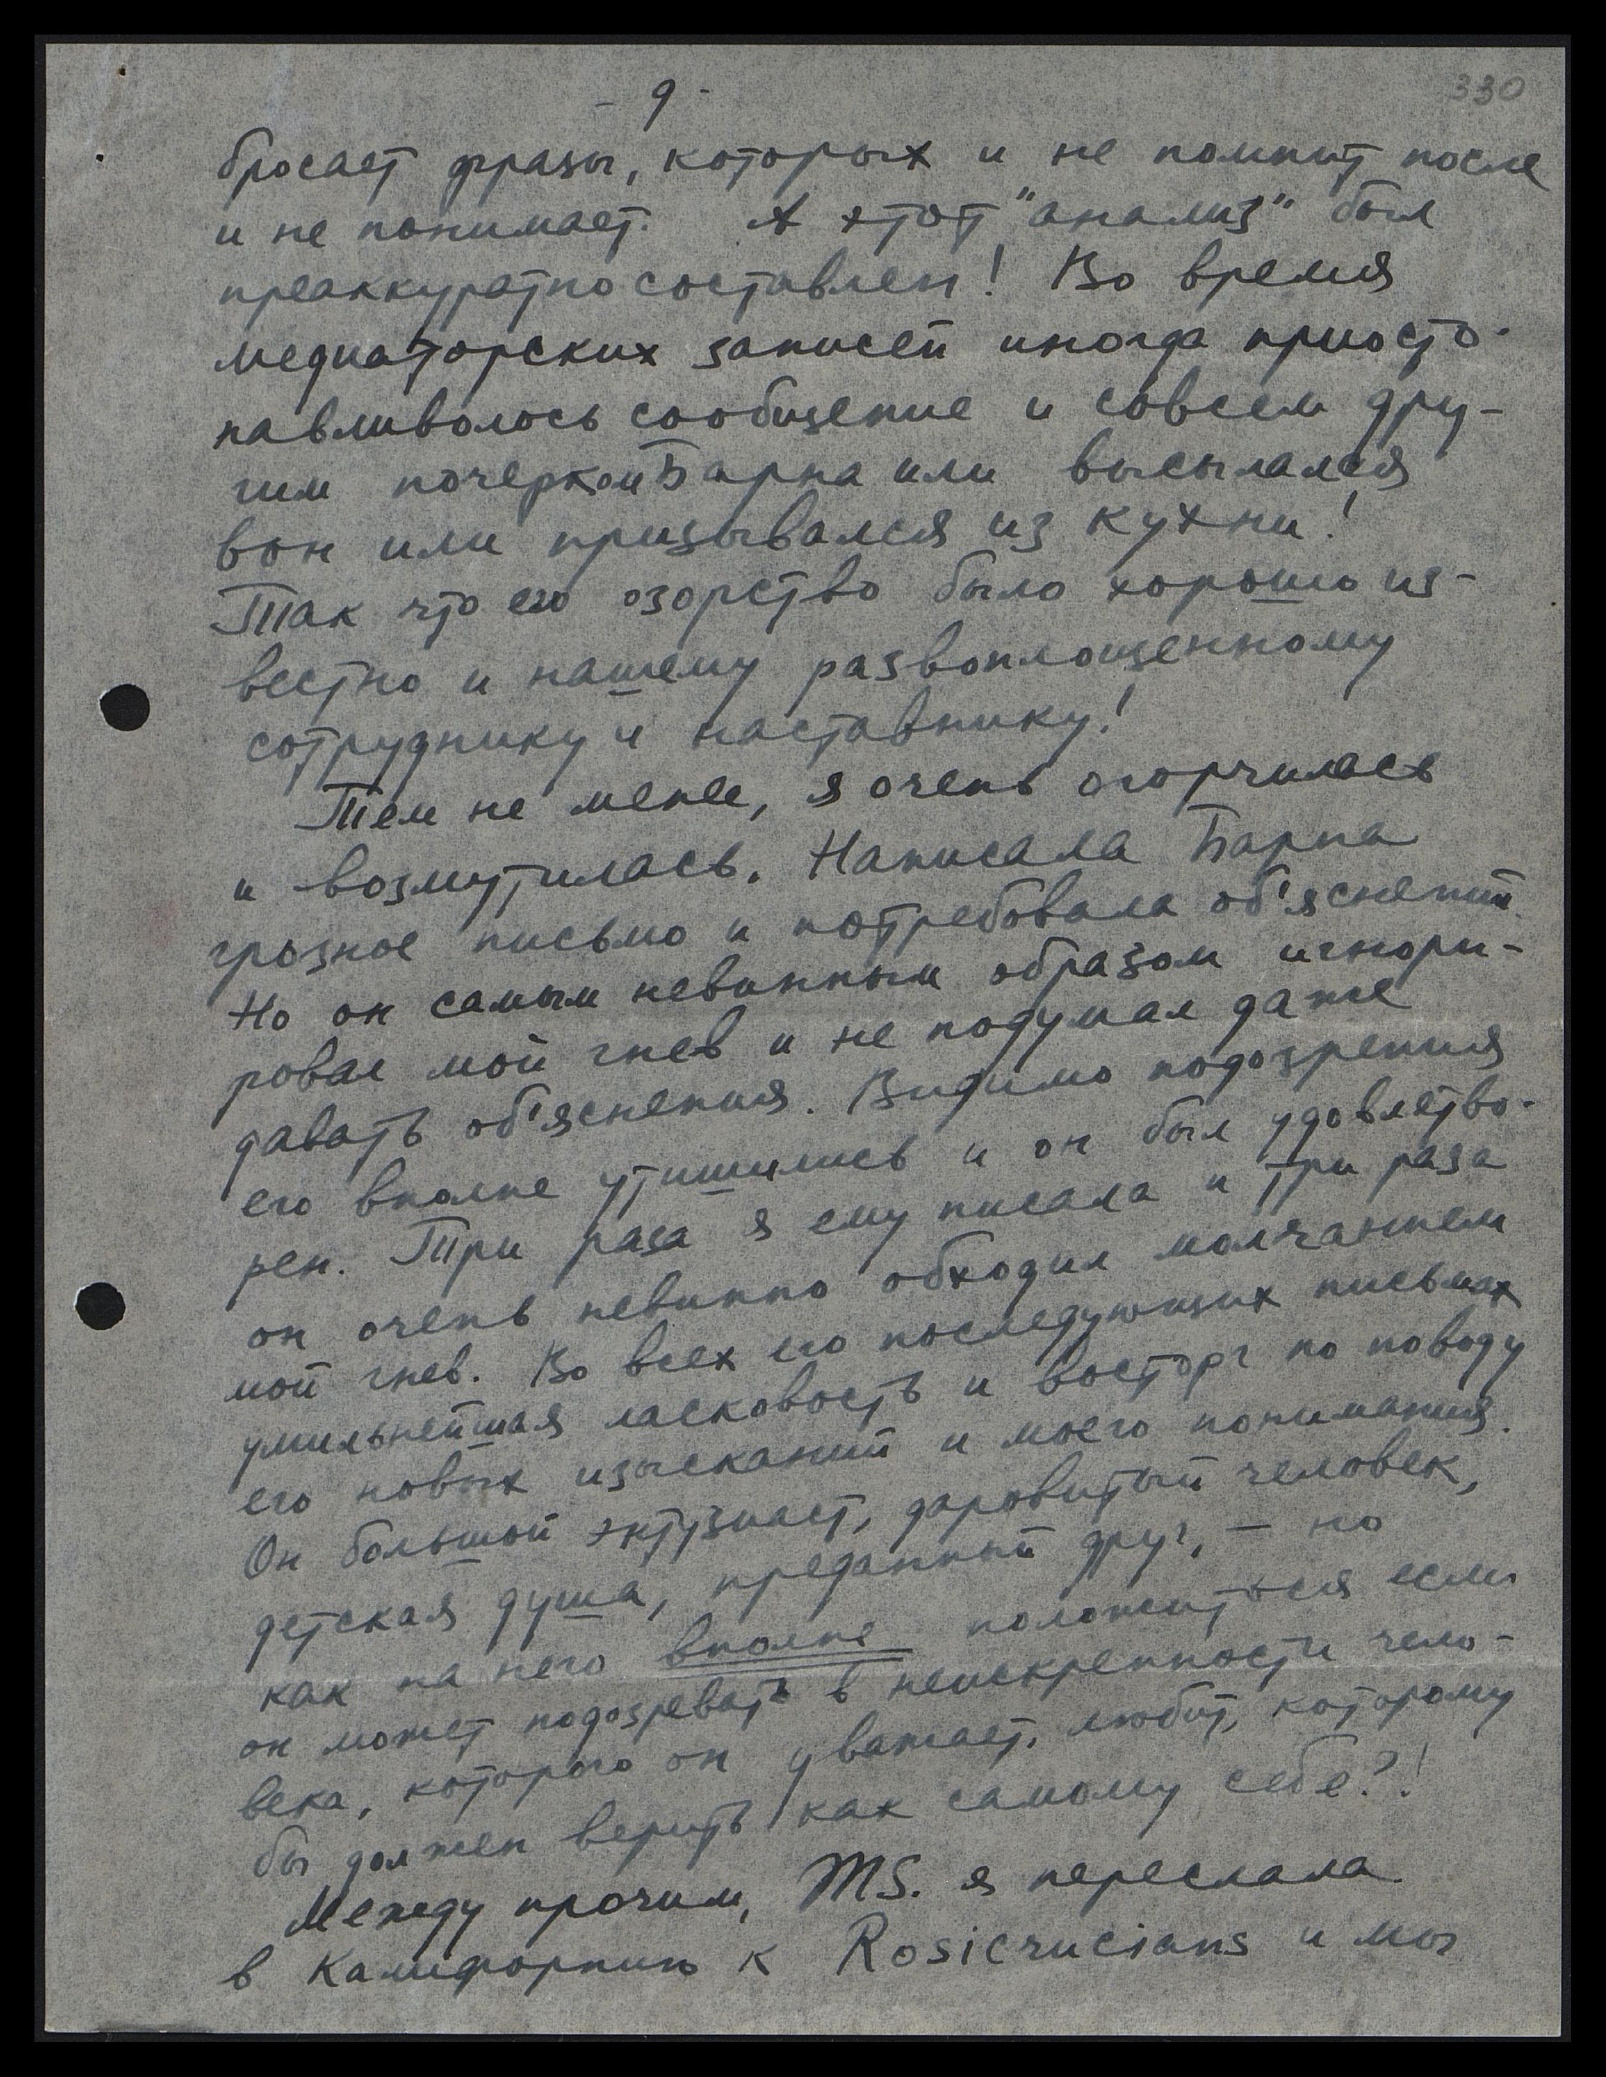 - 9 -
330
бросает фразы, которых и не помнит после
и не понимает. А этот "анализ" был
преаккуратно составлен! Во время
медиаторских записей иногда приоста-
навливалось сообщение и совсем дру-
гим почерком Барна или высылался
вон или призывался из кухни!
Так что его озорство было хорошо из-
вестно и нашему развоплощенному
сотруднику и наставнику!
Тем не менее, я очень огорчилась
и возмутилась. Написала Барна
грозное письмо и потребовала об'яснений.
Но он самым невинным образом игнори-
ровал мой гнев и не подумал даже
давать об'яснения. Видимо подозрения
его вполне утишились и он был удовлетво-
рен. Три раза я ему писала и три раза
он очень невинно обходил молчанием
мой гнев. Во всех его последующих письмах
умильнейшая ласковость и восторг по поводу
его новых изысканий и моего понимания.
Он большой энтузиаст, даровитый человек,
детская душа, преданный друг, – но
как на него вполне положиться если
он может подозревать в неискренности чело-
века, которого он уважает, любит, которому
бы должен верить как самому себе?!
Между прочим, MS. я переслала
в Калифорнию к Rosicrucians и мы